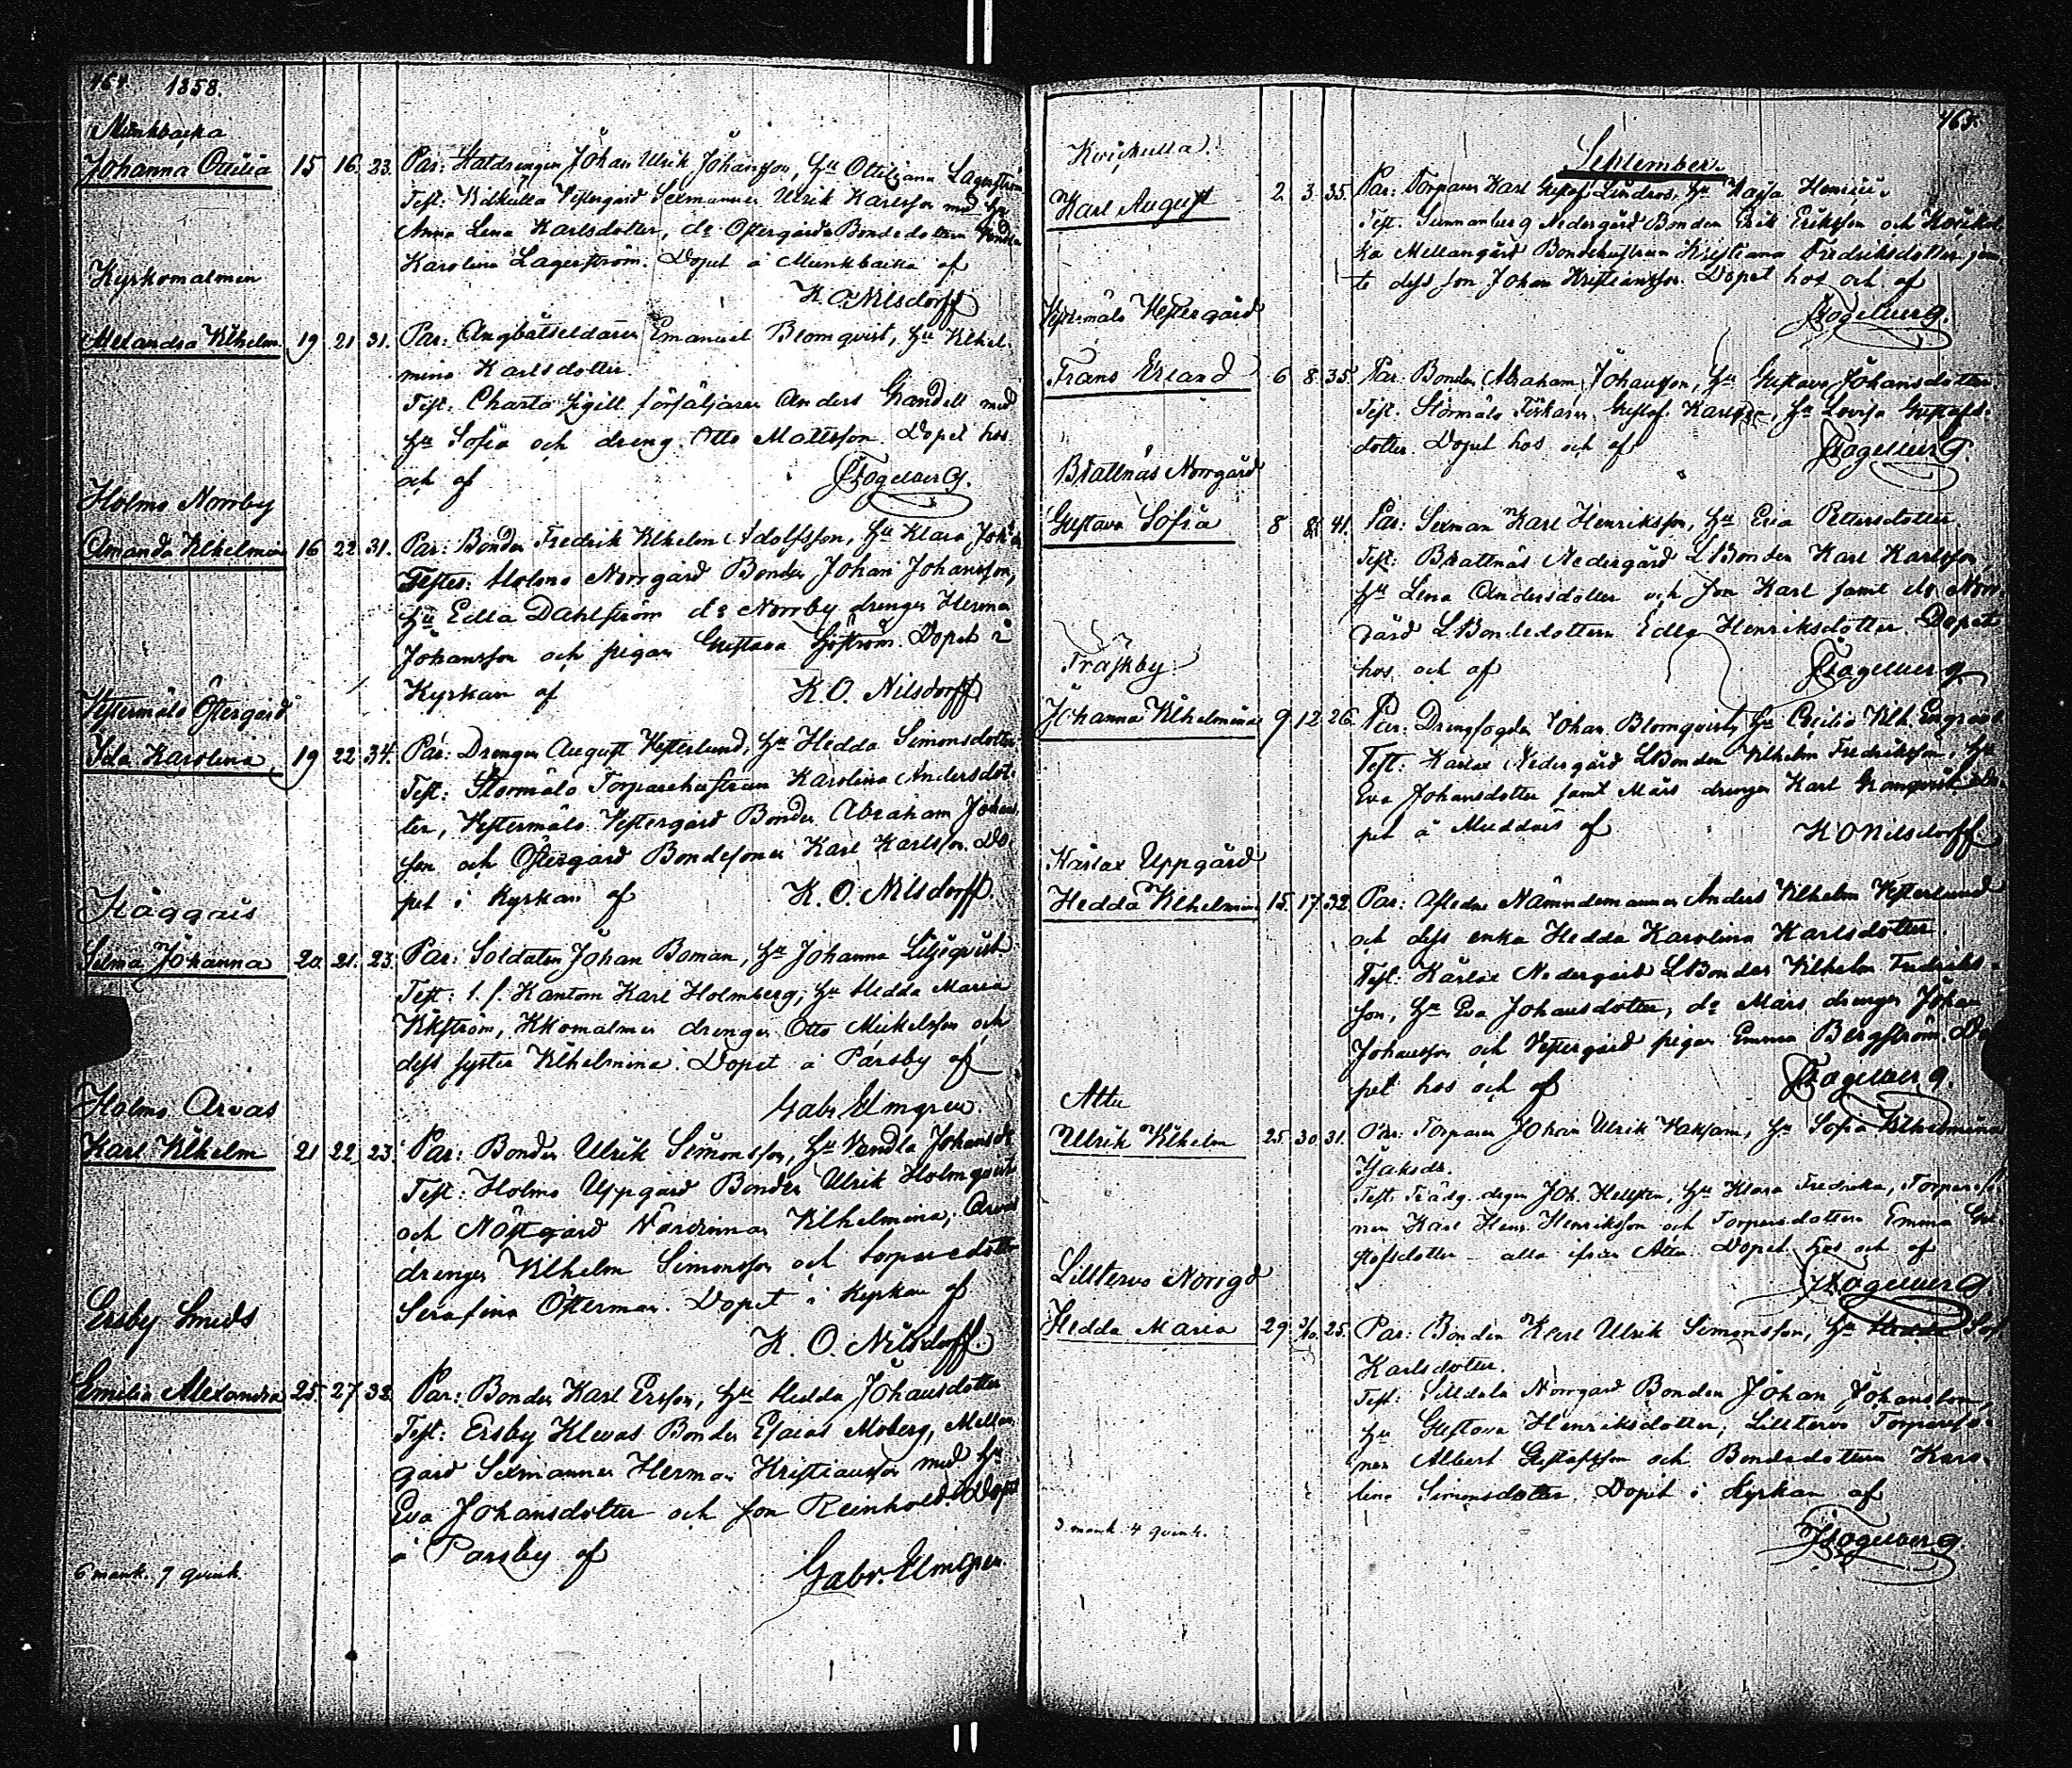 464. 1858.
Munkbacka
Johanna Otilia 15 16. 23. Par: Statdrengen Johan Ulrik Johansson, hu Otiliana Lagerström
Test: Vestergård Sexmannen Ulrik Karlsson med hu
Anna Lena Karlsdotter, do Östergårds Bondedottern
Karolina Lagerström. Döpet å Munkbacka af
K. O. Nilsdorff
Kyrkomalmen
Alexandra Vilhelm. 19 21 31. Par: Ångbåtseldaren Emanuel Blomqvist, hu Vilhel-
mina Karlsdotter.
Test: Charta sigill försäljaren Anders Grandell med
hu Sofia och dreng. Otto Mattsson. Döpet hos
och af FFogelberg.
Holmo Norrby
Amanda Vilhelmina 16 22 31. Par: Bonden Fredrik Vilhelm Adolfsson, hu Klara Johans
Testes: Holmo Norrgård Bonden Johan Johansson,
hu Edla Dahlström do Norrby drengen Herman
Johansson och pigan Gustava Sjöström. Döpet i
Kyrkan af K. O. Nilsdorff
Vestermålö Östergård
Ida Karolina 19 22 34. Par: Drengen August Vesterlund, hu Hedda Simonsdotter
Test: Stormålö Torparehustrun Karolina Andersdot-
ter, Vestermålö Vestergård Bonden Abraham Johans-
son och Östergård Bondesonen Karl Karlsson. Dö-
pet i Kyrkan af K. O. Nilsdorff.
Häggais
Selma Johanna 20. 21. 23. Par: Soldaten Johan Boman, hu Johanna Liljeqvist.
Test: t. f. Kantorn Karl Holmberg, hu Hedda Maria
Vikström, Kkomalmen drengen Otto Mickelsson och
dess syster Vilhelmina. Döpet å Parsby af
Gabr. Elmgren.
Holmo Arvas
Karl Vilhelm 21 22. 23. Par: Bonden Ulrik Simonsson, hu Vendla Johansdr
Test: Holmo Uppgård Bonden Ulrik Holmqvist
och Nöstgård Värdinnan Vilhelmina, Arvas
drengen Vilhelm Simonsson och torparedottern
Serafina Österman. Döpet i Kyrkan af
K. O. Nilsdorff.
Ersby Smeds
Emilia Alexandra 25. 27. 32. Par: Bonden Karl Ersson, hu Hedda Johansdotter
Test: Ersby Klevas Bonden Esaias Moberg, Mellan
gård Sexmannen Herman Kristiansson med hu
Eva Johansdotter och son Reinhold. Döpet
å Parsby af Gabr. Elmgren.
6 mank. 7 qvink.
465.
September.
Kvickulla.
Karl August 2 3. 35. Par: Torparen Karl Gustaf Lindros, hu Kajsa Henrics.
Test. Sunnanberg Nedergård Bonden Erik Eriksson och Kvickul
ka Mellangård Bondehustrun Kristiana Fredriksdotter jem
te dess son Johan Kristiansson. Döpet hos och af
FFogelberg.
Vestermålö Vestergård
Frans Erland 6 8. 35. Par: Bonden Abraham Johansson, hu Gustava Johansdotter
Test. Stormålö Gustaf Karlsson, hu Lovisa Gustafs-
dotter. Döpet hos och af FFogelberg.
Brattnäs Norrgård
Gustava Sofia 8 8. 41. Par: Sexman Karl Henriksson, hu Eva Pettersdotter.
Test: Brattnäs Nedergård LBonden Karl Karlsson,
hu Lena Andersdotter och son Karl samt do Norr-
gård LBondedottern Edla Henriksdotter. Döpet
hos och af FFogelberg
Träskby.
Johanna Vilhelmina 9 12 26. Par: Drengfogden Johan Blomqvist, hu Cecilia Vilh. Engqvist.
Test: Karlax Nedergård LBonden Vilhelm Fredriksson, hu
Eva Johansdotter samt Mårs drengen Karl Granqvist. Dö-
pet å Muddais af K O Nilsdorff
Karlax Uppgård
Hedda Vilhelmina 15. 17. 32. Par: Afledne Nämndemannen Anders Vilhelm Vesterlund
och dess enka Hedda Karolina Karlsdotter.
Test: Karlax Nedergård LBonden Vilhelm Fredriks-
son, hu Eva Johansdotter, do Mårs drengen Johan
Johansson och Vestergård pigan Emma Bergström. Dö-
pet hos och af FFogelberg.
Attu
Ulrik Vilhelm 25. 30. 31. Par: Torparen Johan Ulrik Isaksson, hu Sofia Vilhelmina
Isaksdr.
Test: Trädg. dreng Joh. Hellsten, hu Klara Fredrika, Torpareso-
nen Karl Henr. Henriksson och Torparedottern Emma Gu-
stafsdotter – alla ifrån Attu. Döpet hos och af
FFogelberg
Lilltervo Norrgd
Hedda Maria 29 3/10. 25. Par: Bonden Karl Ulrik Simonsson, hu Hedda Sof
Karlsdotter.
Test: Silldala Norrgård Bonden Johan Johansson,
hu Gustava Henriksdotter, Lilltervo Torpareso-
nen Albert Gustafsson och Bondedottern Karo-
lina Simonsdotter. Döpet i Kyrkan af
FFogelberg.
3 mank. 4 qvink.